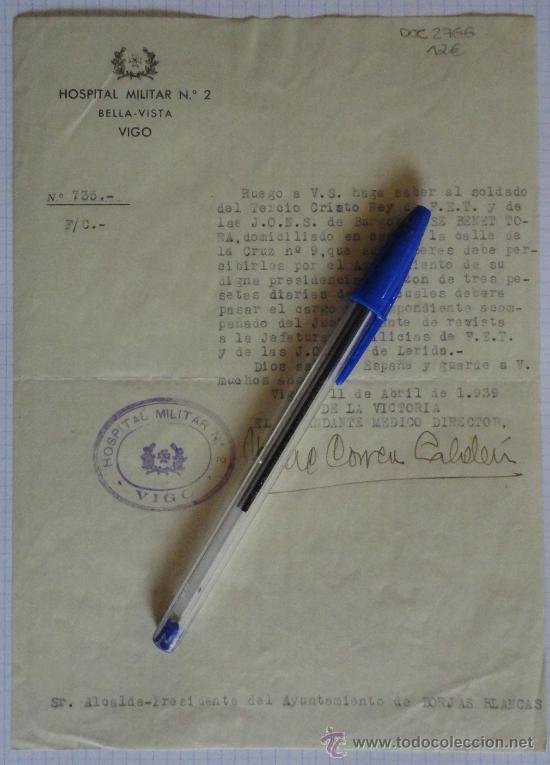 DOC 2766
12€
HOSPITAL MILITAR N.º 2
BELLA-VISTA
VIGO
Nº 735.-
F/C.-
Ruego a V.S. haga saber al soldado
del Tercio Cristo Rey F.E.T. y de
las J.O.N.S. de SE BENET TO-
RA, domiciliado en la calle de
la Cruz nº 9, que debe per-
cibirlos por el de su
digna presidencia de tres pe-
setas diarias debera
pasar el cargo acom-
pañado del de revista
a la Jefatura de F.E.T.
y de las de Lerida.-
Dios España y guarde a V.
muchos
11 de Abril de 1.939
DE LA VICTORIA
EL MEDICO DIRECTOR,
HOSPITAL MILITAR Nº 2
VIGO
Sr. Alcalde-Presidente del Ayuntamiento de BORJAS BLANCAS
http://www.todocoleccion.net